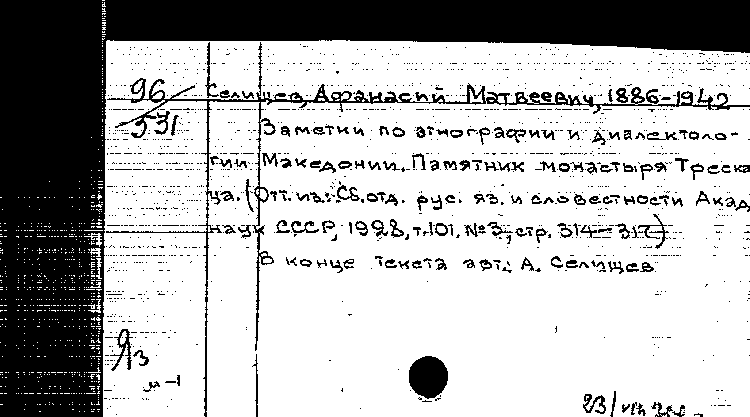 96
531
Селищев, Афанасий Матвеевич, 1886-1942
Заметки по этнографии и диалектоло-
гии Македонии. Памятник монастыря Треска
ца. (Отт. из: Сб. отд. рус. яз. и словестности Акад.
наук СССР, 1928, т. 101. №3, стр. 314-317)
В конце текста авт.: А. Селищев
Яз
м-1